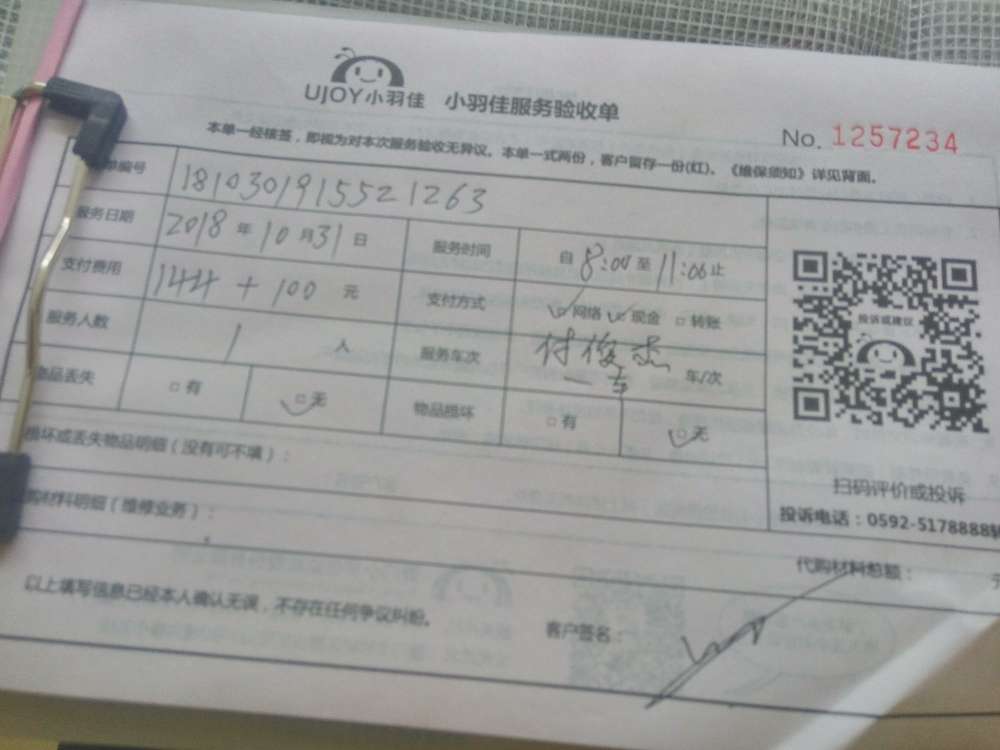 UJOY小羽佳 小羽佳服务验收单
No. 1257234
本单一经核签，即视为对本次服务验收无异议。本单一式两份，客户留存一份(红)。《维保须知》详见背面。
单编号 1810301915521263
服务日期 2018 年 10 月 31 日 服务时间 自 8:00 至 11:00 止
支付费用 144 + 100 元 支付方式 网络 现金 转账
服务人数 1 人 服务车次 付俊杰 一 车/次
物品丢失 有 无 物品损坏 有 无
投诉或建议
损坏或丢失物品明细（没有可不填）：
扫码评价或投诉
购材料明细（维修业务）：
投诉电话：0592-5178888转
代购材料总额：
以上填写信息已经本人确认无误，不存在任何争议纠纷。
客户签名：